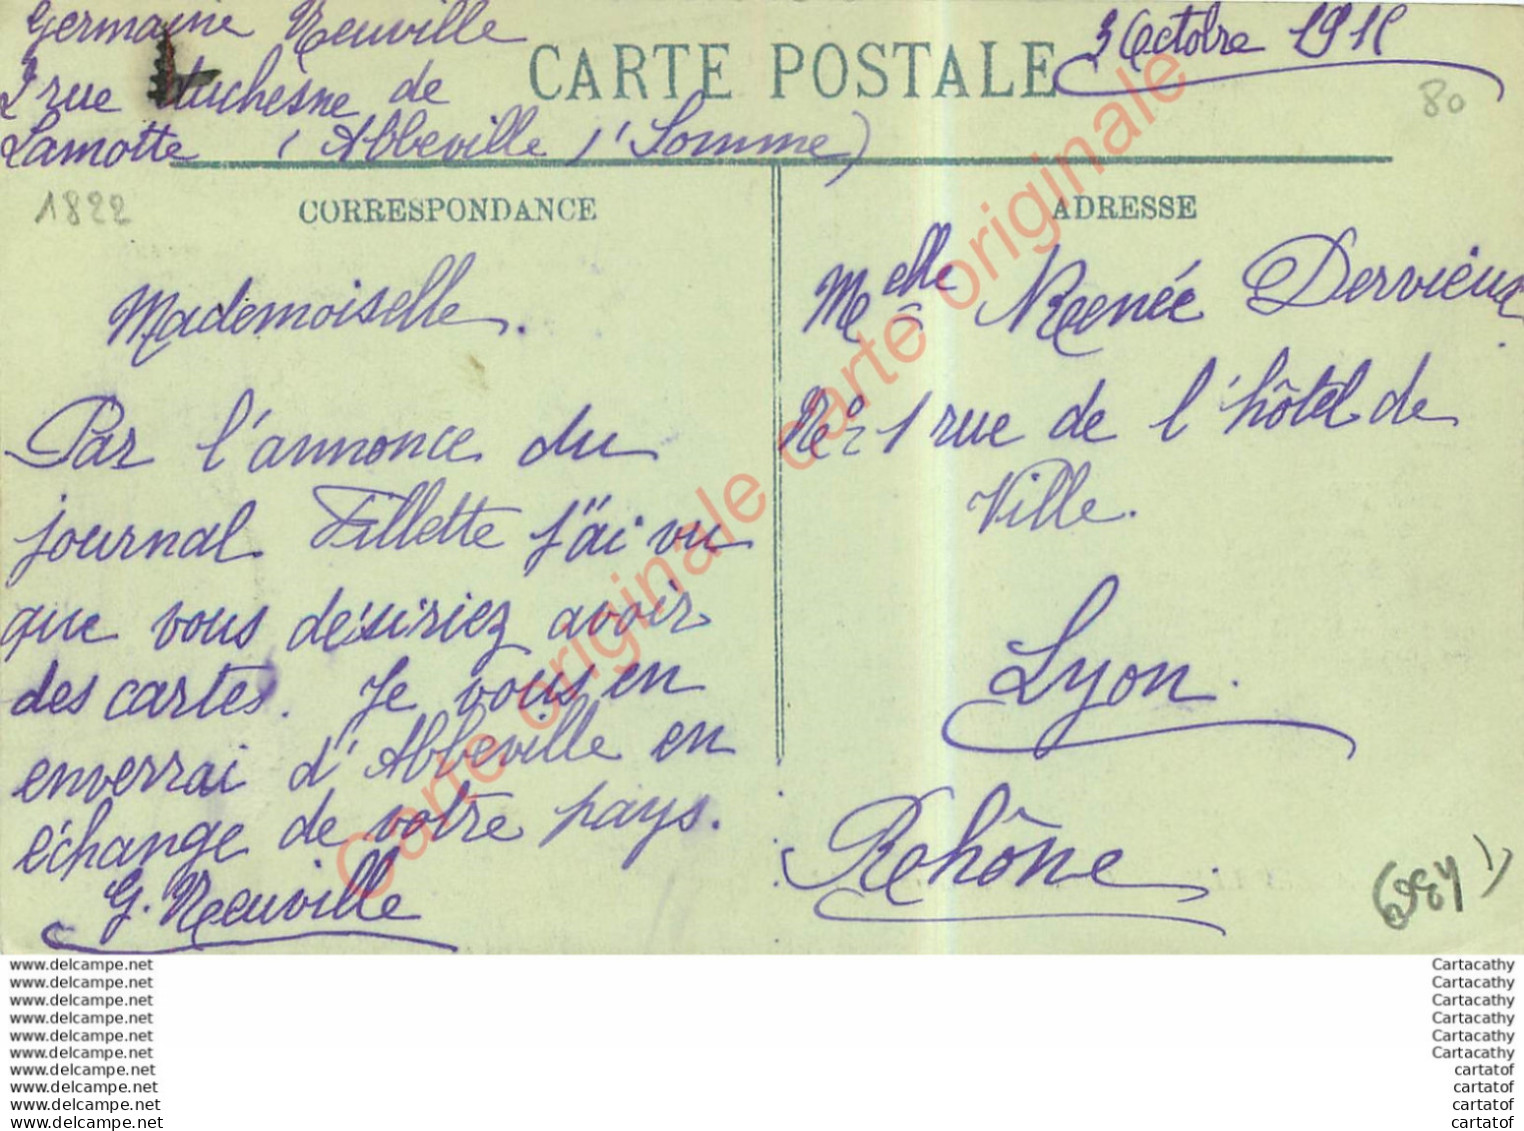 Germaine Neuville
2 rue Duchesne de
Lamotte (Abbeville) Somme)
CARTE POSTALE
3 Octobre 1911
80
1822
CORRESPONDANCE
Mademoiselle.
Par l'annonce du
journal Fillette j'ai vu
que vous désiriez avoir
des cartes. Je vous en
enverrai d'Abbeville en
échange de votre pays.
G. Neuville
ADRESSE
Melle Renée Dervieux
No 1 rue de l'hôtel de
Ville.
Lyon.
Rhône.
Carte originale carte originale
www.delcampe.net
www.delcampe.net
www.delcampe.net
www.delcampe.net
www.delcampe.net
www.delcampe.net
www.delcampe.net
www.delcampe.net
www.delcampe.net
www.delcampe.net
Cartacathy
Cartacathy
Cartacathy
Cartacathy
Cartacathy
Cartacathy
cartatof
cartatof
cartatof
cartatof